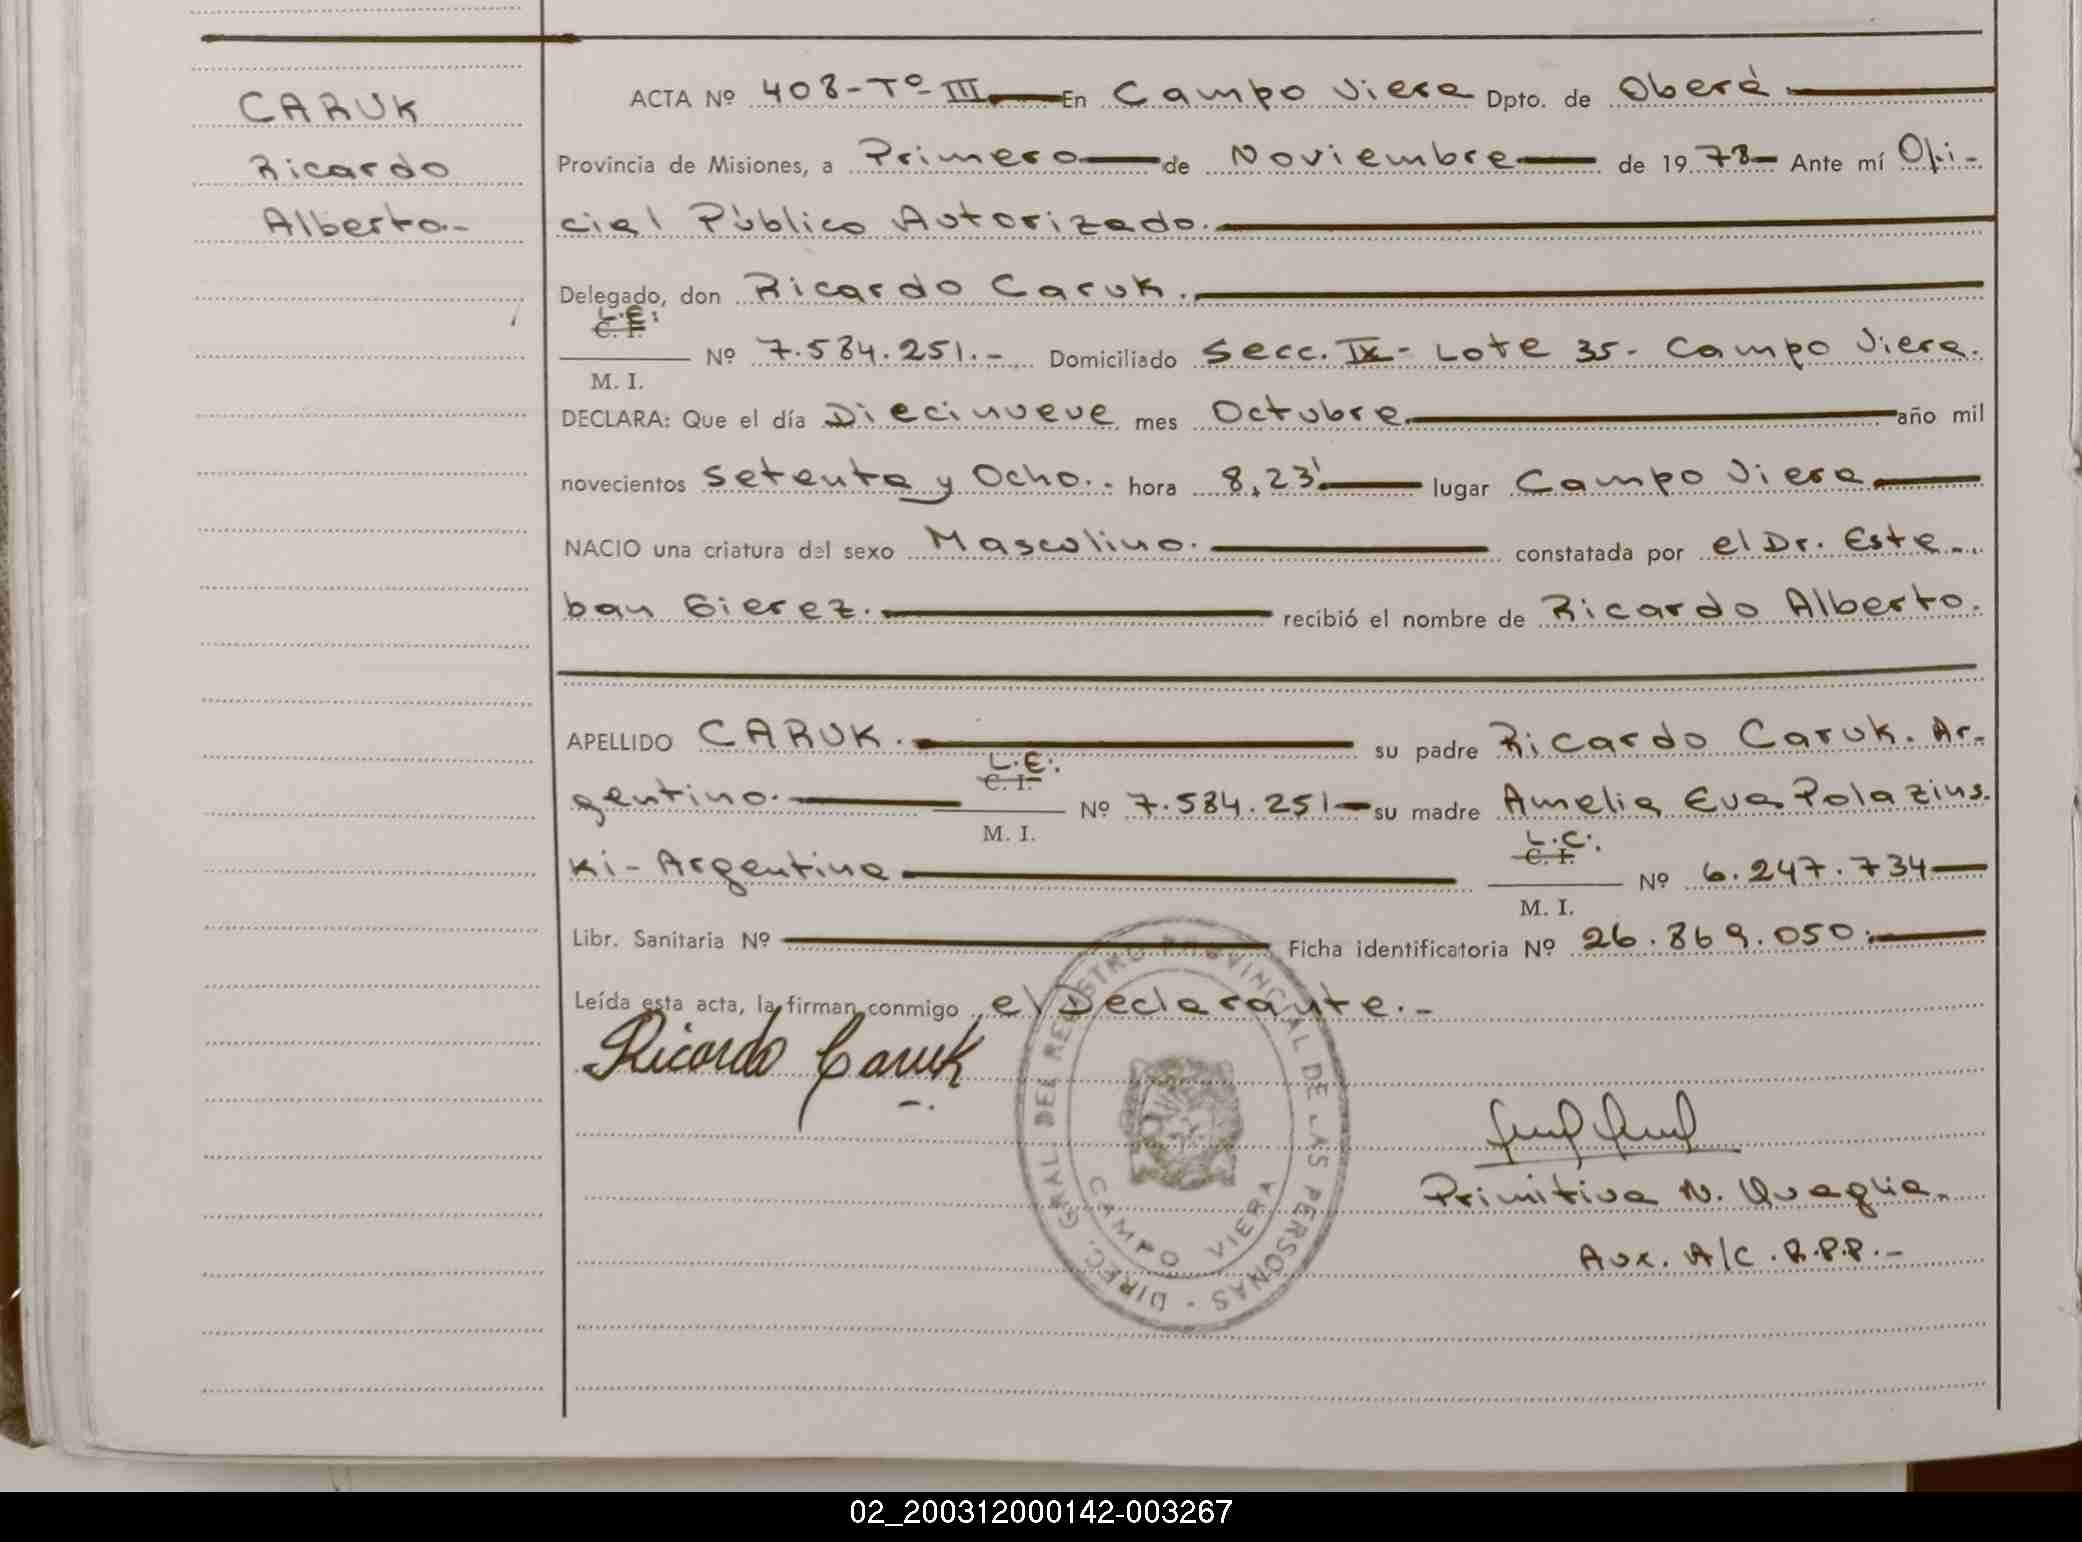 CARUK
Ricardo
Alberto.-
ACTA Nº 408-Tº-III En Campo Viera Dpto. de Oberá
Provincia de Misiones, a Primero de Noviembre de 1978 Ante mí Ofi-
cial Público Autorizado.
Delegado, don Ricardo Caruk.
L.E.:
C. I.
Nº 7.584.251.- Domiciliado Secc. IX- Lote 35- Campo Viera.
M. I.
DECLARA: Que el día Diecinueve mes Octubre año mil
novecientos Setenta y Ocho.- hora 8,23' lugar Campo Viera
NACIO una criatura del sexo Masculino. constatada por el Dr. Este-
ban Gierez. recibió el nombre de Ricardo Alberto.
APELLIDO CARUK. su padre Ricardo Caruk. Ar-
L.E.:
C. I.
gentino. Nº 7.584.251 su madre Amelia Eva Polazins-
M. I.
L.C.:
C. I.
ki- Argentina Nº 6.247.734
M. I.
Libr. Sanitaria Nº Ficha identificatoria Nº 26.869.050.
Leída esta acta, la firman conmigo el Declarante.-
Ricardo Caruk
DIREC. GRAL DEL REGISTRO PROVINCIAL DE LAS PERSONAS
CAMPO VIERA
Primitiva N. Quaglia.
Aux. A/C. R.P.P.-
02_200312000142-003267